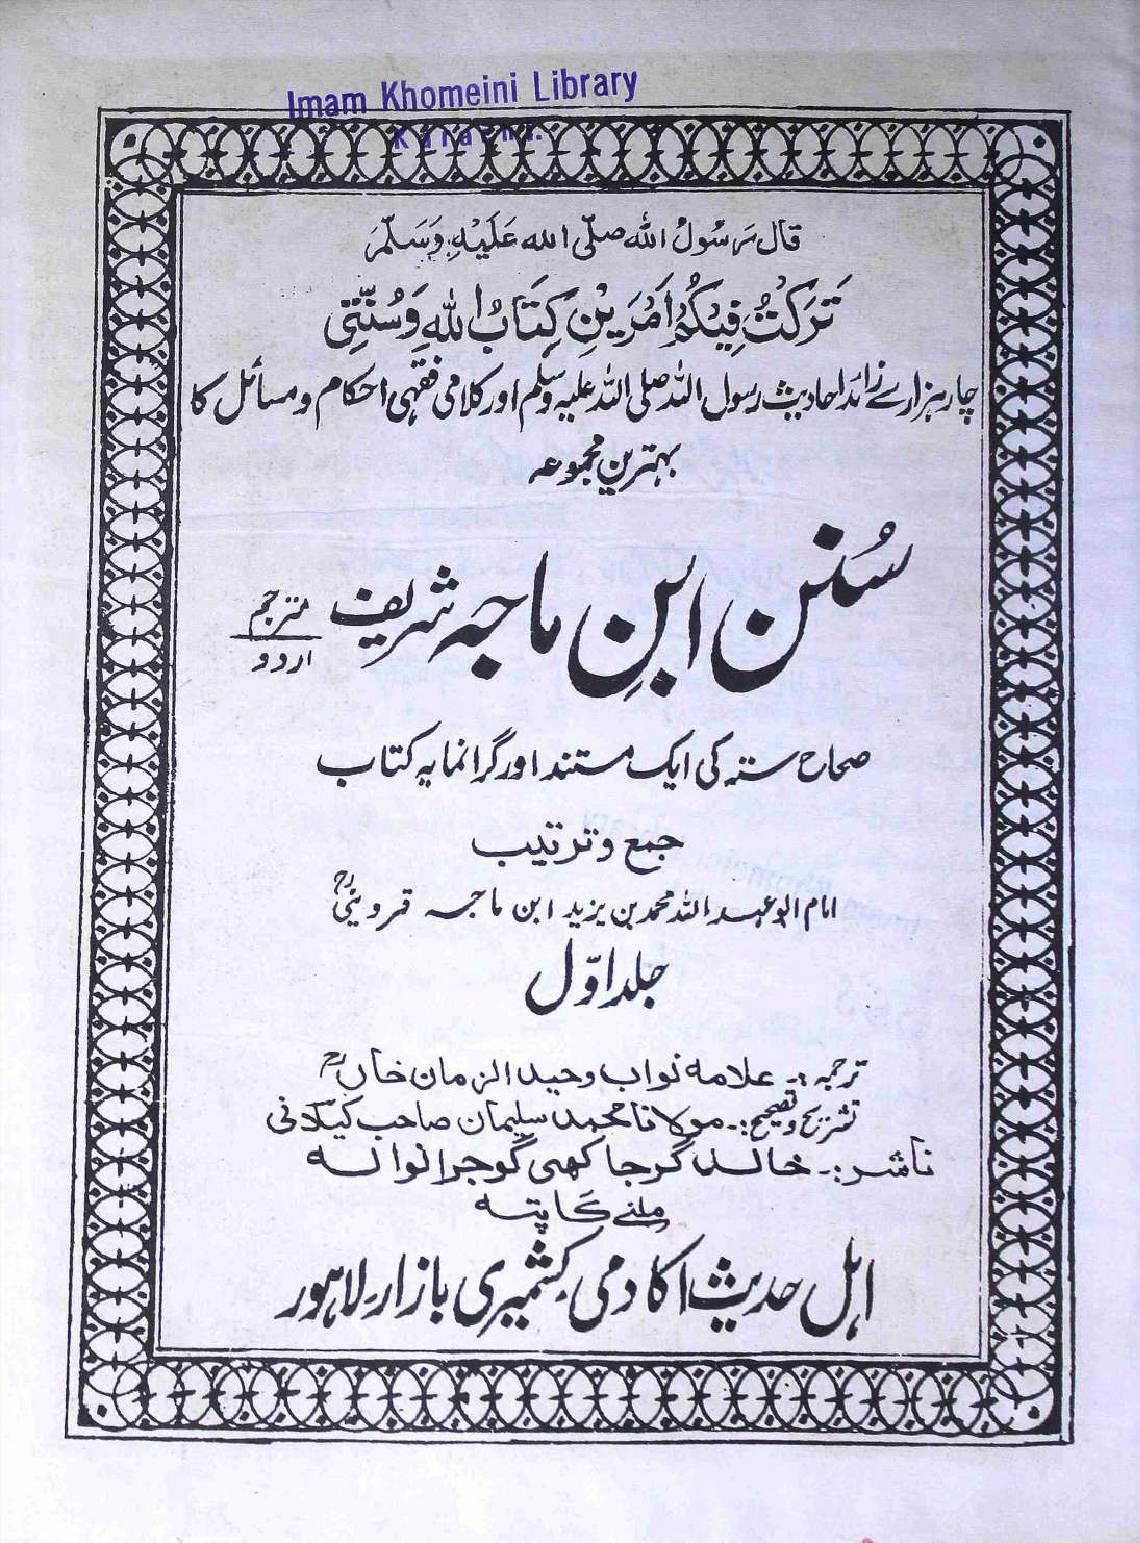 Imam Khomeini Library
Karachi.
قال رسول الله صلّى الله عَلَيْهِ وَسَلَّمَ
تَرَكْتُ فِيْكُمْ اَمْرَيْنِ كِتَابُ اللهِ وَسُنَّتِيْ
چار ہزار سے زائد احادیث رسول اللہ صلی اللہ علیہ وسلم اور کلامی فقہی احکام و مسائل کا
بہترین مجموعہ
سُنن ابنِ ماجہ شریف مترجم اردو
صحاح ستہ کی ایک مستند اور گرانمایہ کتاب
جمع و ترتیب
امام ابو عبد اللہ محمد بن یزید ابن ماجہ قزوینیؒ
جلد اوّل
ترجمہ :۔ علامہ نواب وحید الزمان خاںؒ
تشریح و تصحیح :۔ مولانا محمد سلیمان صاحب کیلانی
ناشر :۔ خالد گرجاکھی گوجرانوالہ
ملنے کا پتہ
اہل حدیث اکادمی کشمیری بازار ۔ لاہور